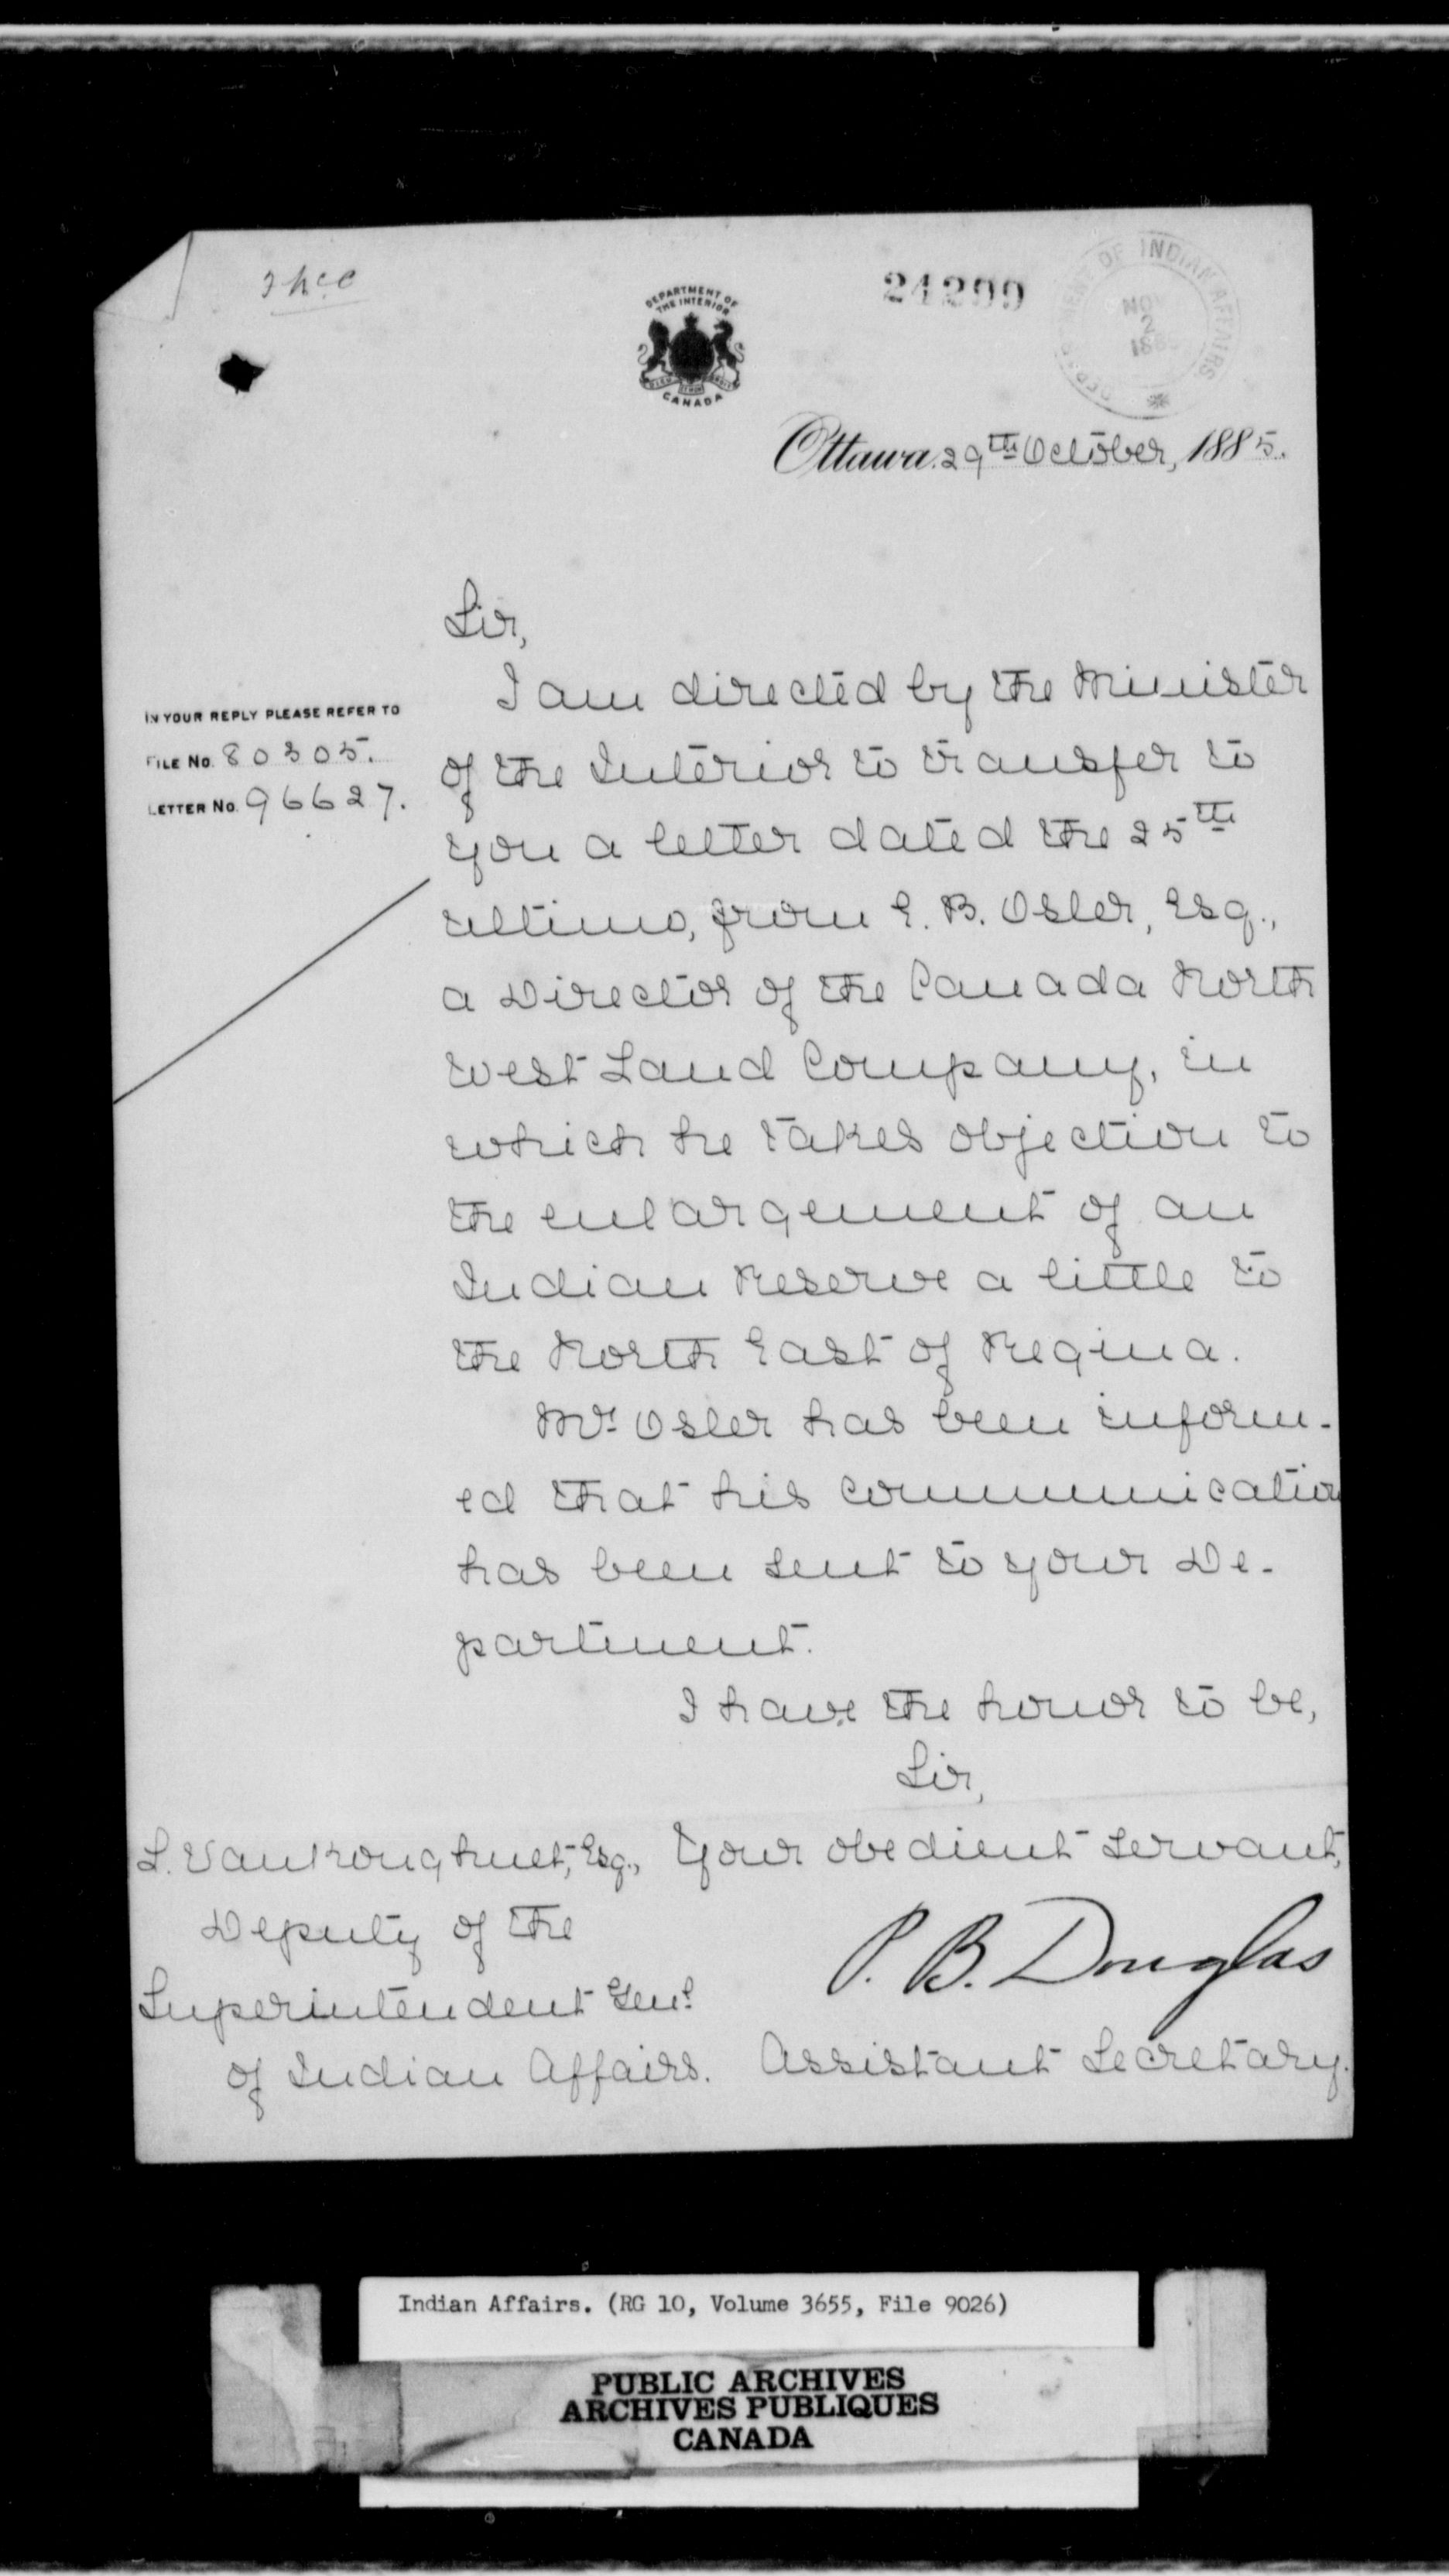 24299
DEPARTMENT OF INDIAN AFFAIRS
NOV
2
DEPARTMENT OF
THE INTERIOR
CANADA
Ottawa. 29th October, 1885.
Sir,
I am directed by the Minister
IN YOUR REPLY PLEASE REFER TO
FILE No. 80305.
LETTER No. 96627.
of the Interior to transfer to
you a letter dated the 25th
ultimo, from E. B. Osler, Esq.,
a Director of the Canada North
West Land Company, in
which he takes objection to
the enlargement of an
Indian Reserve a little to
the North East of Regina.
Mr. Osler has been inform-
ed that his communication
has been sent to your De-
partment.
I have the honor to be,
Sir,
Your obedient servant,
P. B. Douglas
Assistant Secretary.
L. Vankoughnet, Esq.,
Deputy of the
Superintendent Genl.
of Indian Affairs.
Indian Affairs. (RG 10, Volume 3655, File 9026)
PUBLIC ARCHIVES
ARCHIVES PUBLIQUES
CANADA